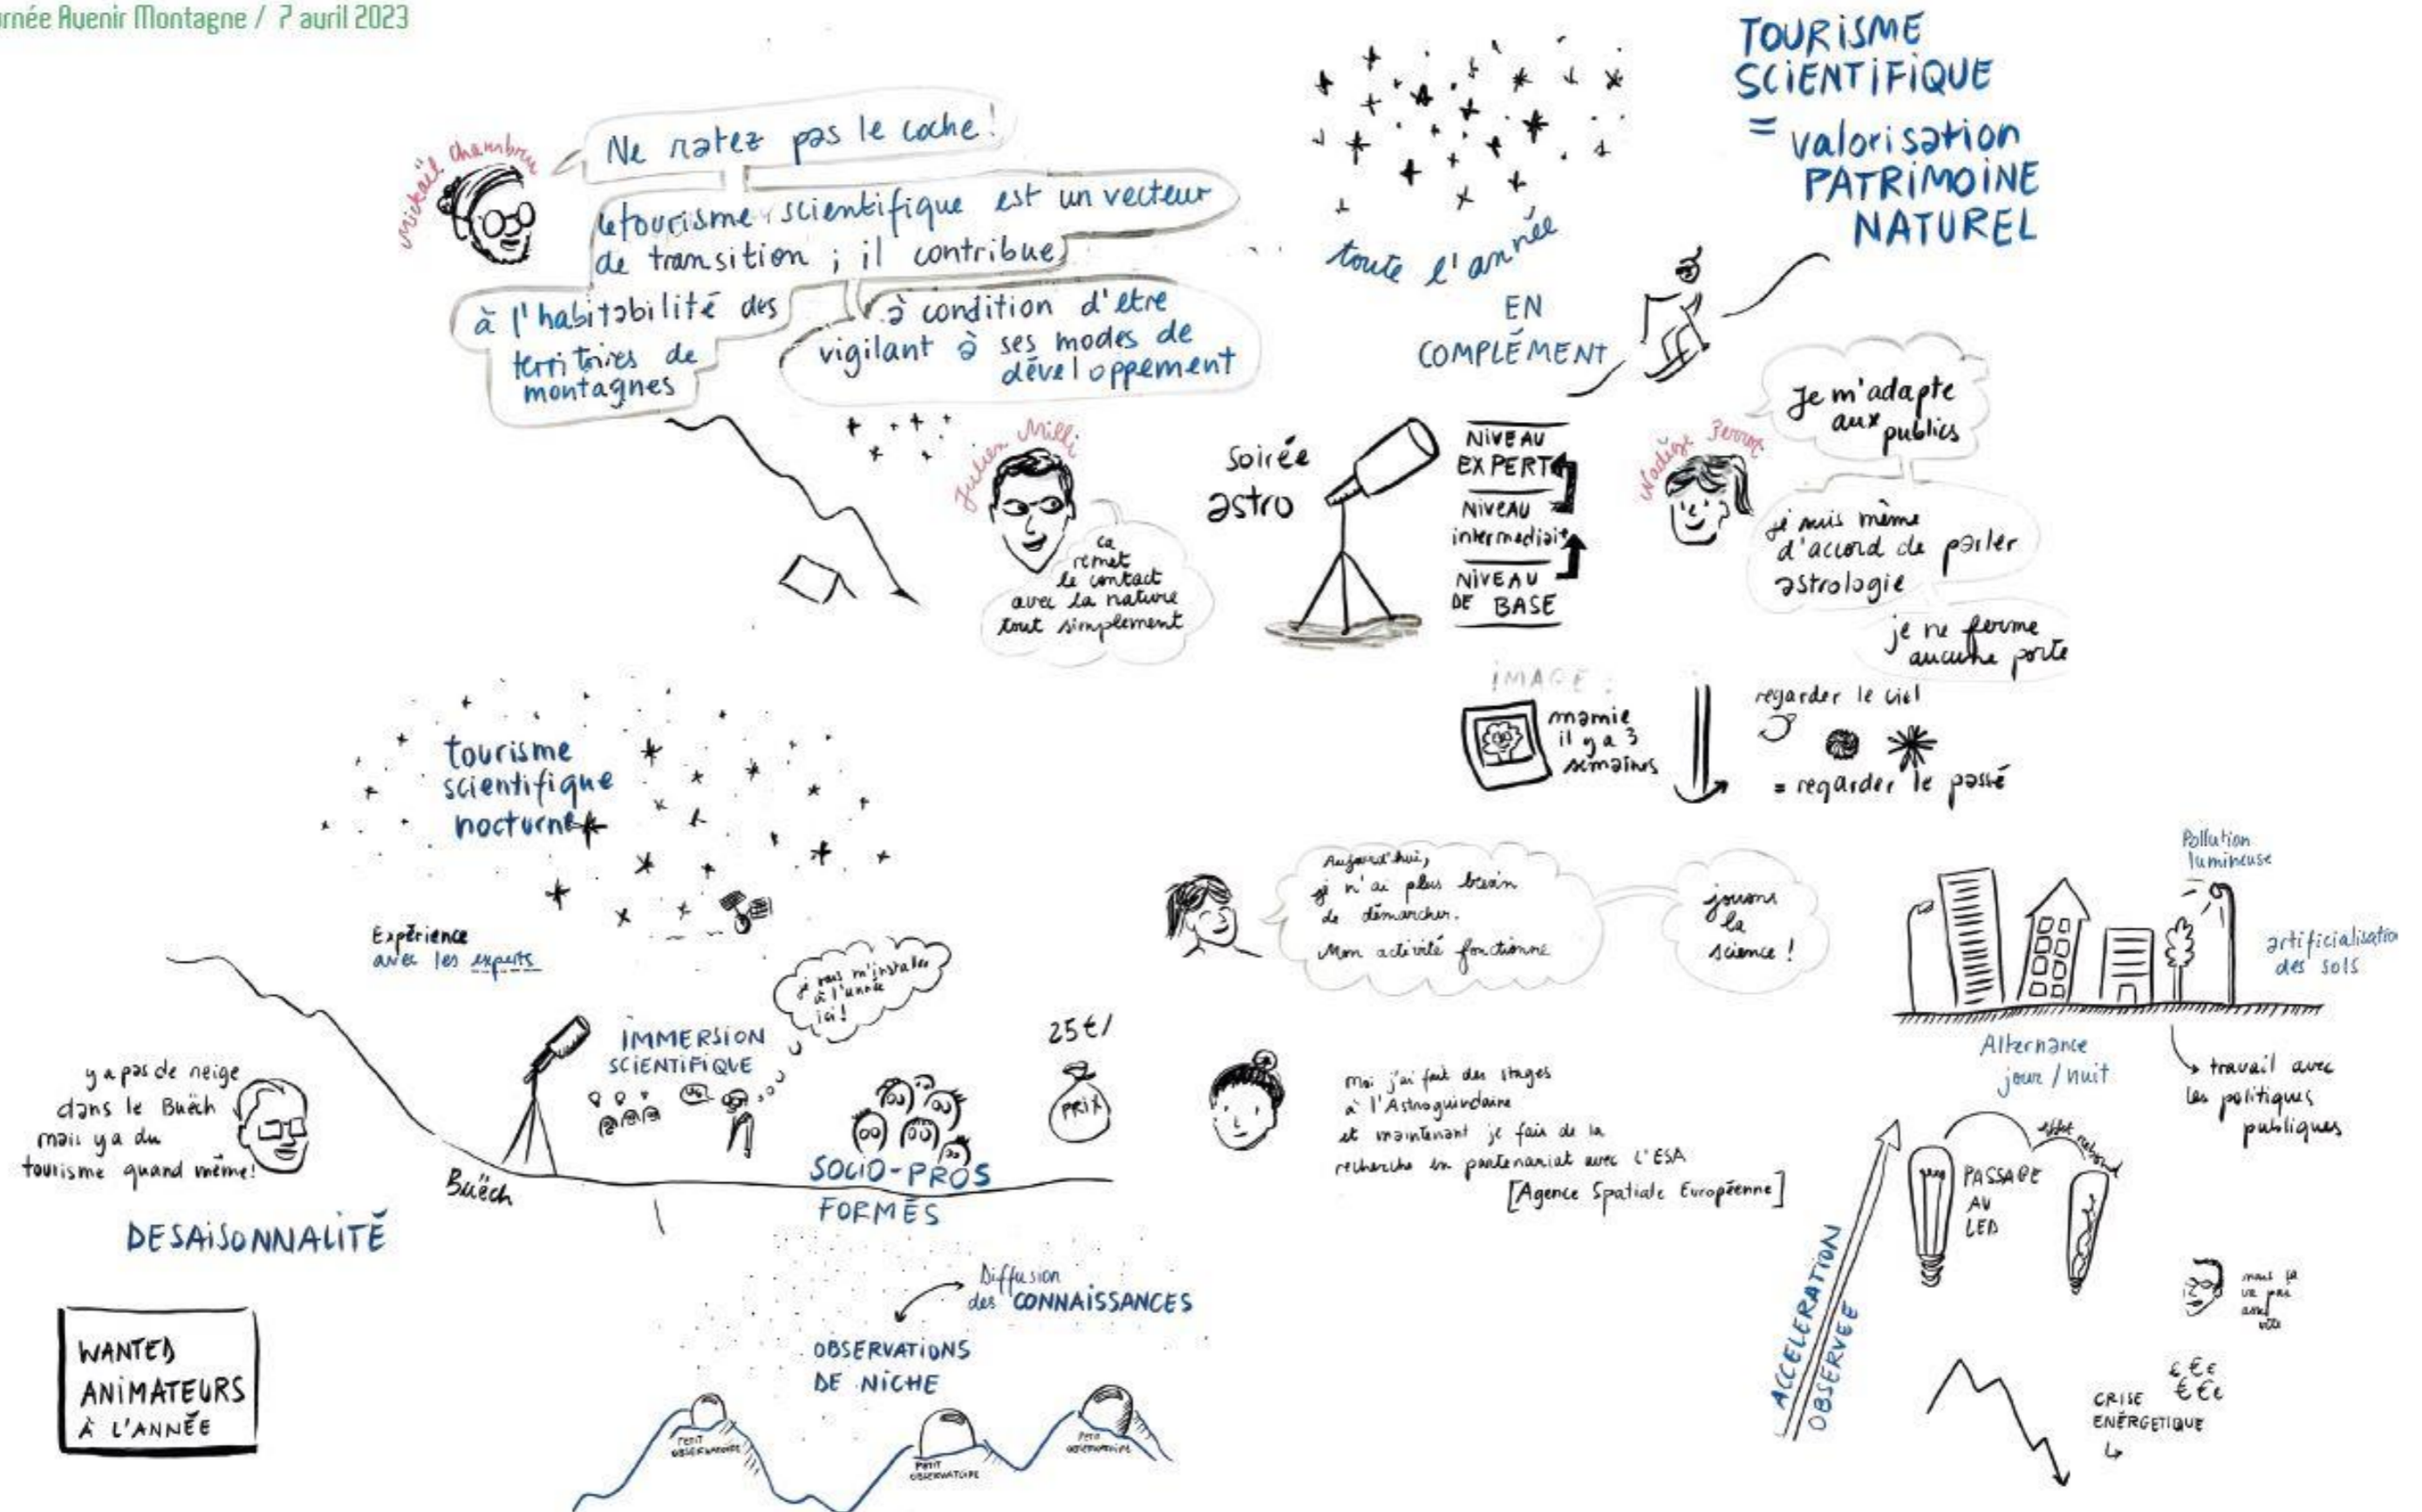 rnée Avenir Montagne / 7 avril 2023
Mickaël Chambru
Ne ratez pas le coche!
le tourisme scientifique est un vecteur
de transition ; il contribue
à l'habitabilité des
territoires de
montagnes
à condition d'être
vigilant à ses modes de
développement
toute l'année
EN
COMPLÉMENT
TOURISME
SCIENTIFIQUE
= valorisation
PATRIMOINE
NATUREL
Julien Milli
ca
remet
le contact
avec la nature
tout simplement
Soirée
astro
NIVEAU
EXPERT
NIVEAU
intermediaire
NIVEAU
DE BASE
Nadège
Je m'adapte
aux publics
je suis même
d'accord de parler
astrologie
je ne ferme
aucune porte
IMAGE :
mamie
il y a 3
semaines
regarder le ciel
= regarder le passé
tourisme
scientifique
nocturne
Expérience
avec les experts
y a pas de neige
dans le Buëch
mais y a du
tourisme quand même!
Buëch
IMMERSION
SCIENTIFIQUE
je vais m'installer
à l'année
ici!
SOCIO-PROS
FORMÉS
25€/
PRIX
DESAISONNALITÉ
WANTED
ANIMATEURS
À L'ANNÉE
Diffusion
des CONNAISSANCES
OBSERVATIONS
DE NICHE
PETIT
OBSERVATOIRE
PETIT
OBSERVATOIRE
PETIT
OBSERVATOIRE
Aujourd'hui,
je n'ai plus besoin
de démarcher.
Mon activité fonctionne
jouons
la
science !
Moi j'ai fait des stages
à l'Astroguindaine
et maintenant je fais de la
recherche en partenariat avec l'ESA
[Agence Spatiale Européenne]
Pollution
lumineuse
artificialisation
des sols
Alternance
jour / nuit
travail avec
les politiques
publiques
ACCELERATION
OBSERVEE
PASSAGE
AU
LED
effet rebond
mais ça
va pas
assez
vite
CRISE
ENÉRGETIQUE
€ € €
€ € €